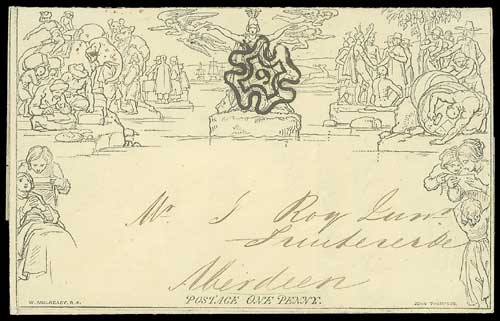 9
Mr. J Roy Junr.
Aberdeen
POSTAGE ONE PENNY.
W. MULREADY. R.A.
JOHN THOMPSON.